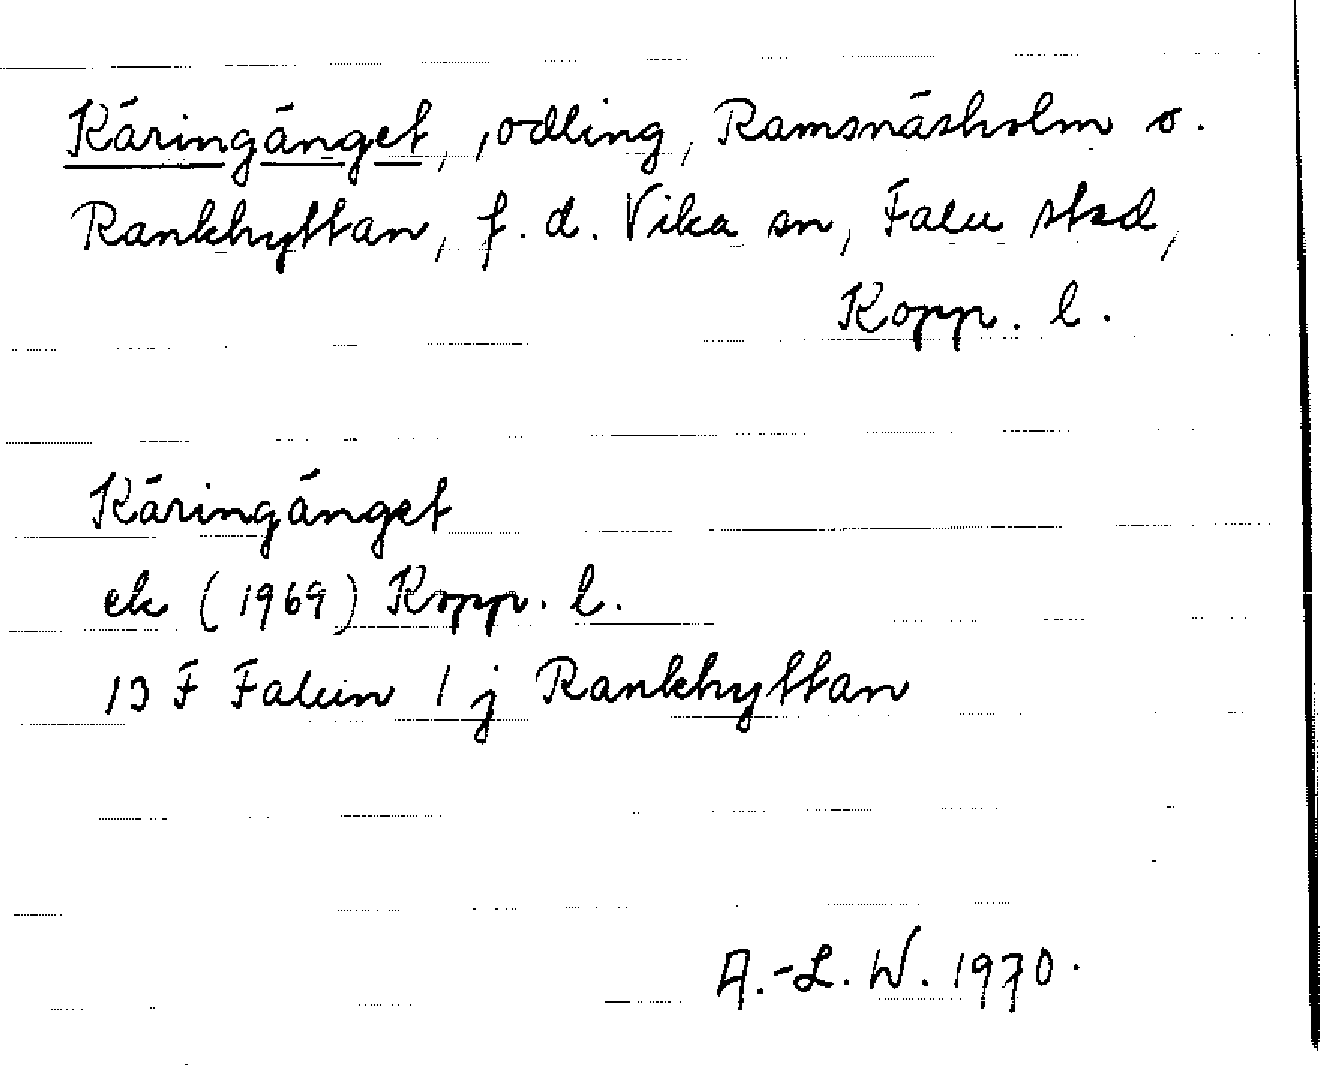 Käringänget, , odling, Ramsnäsholm o.
Rankhyttan, f. d. Vika sn, Falu stad,
Kopp. l.
Käringänget
ek (1969) Kopp. l.
13 F Falun 1 j Rankhyttan
A.-L. W. 1970.